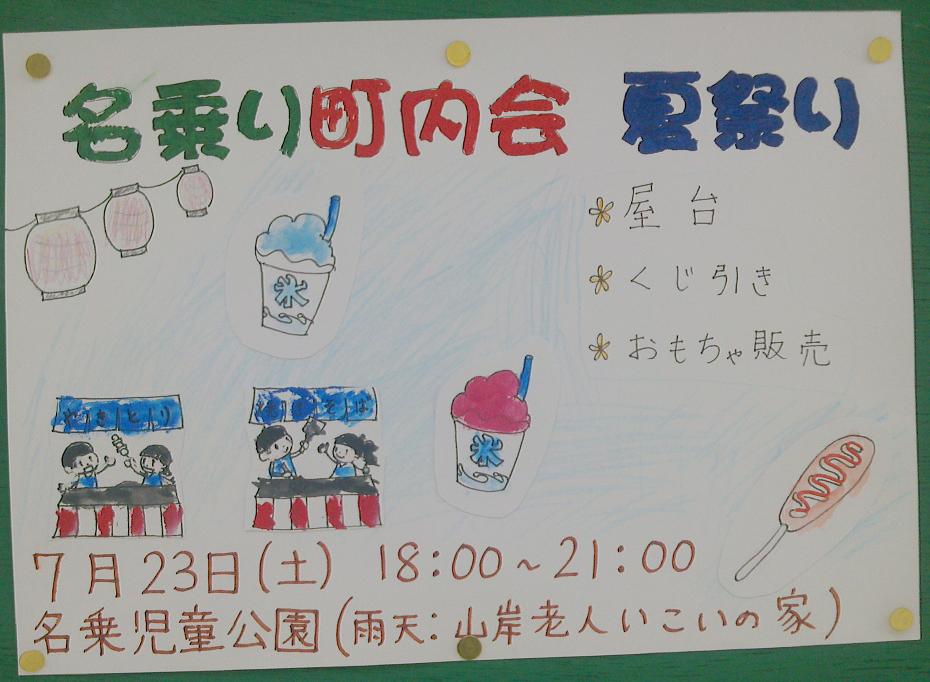 名乗り町内会 夏祭り
屋台
くじ引き
おもちゃ販売
氷
氷
やきとり
焼きそば
7月23日(土) 18:00~21:00
名乗児童公園(雨天:山岸老人いこいの家)